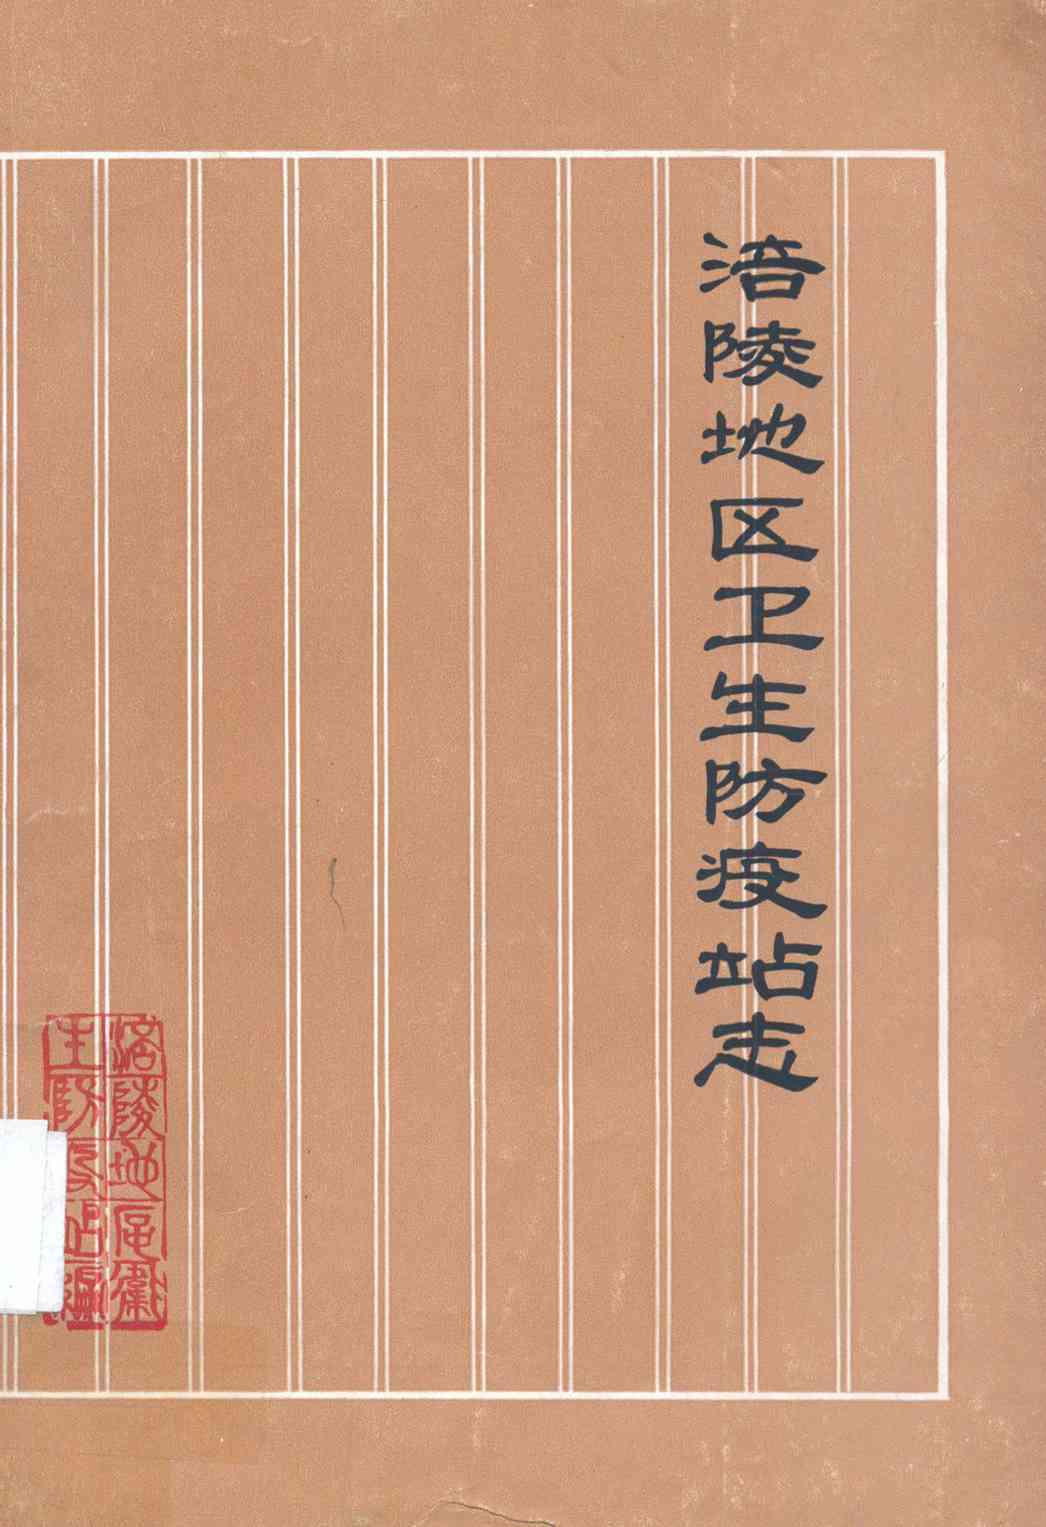 涪陵地区卫生防疫站志
涪陵地區衞
生防疫站編